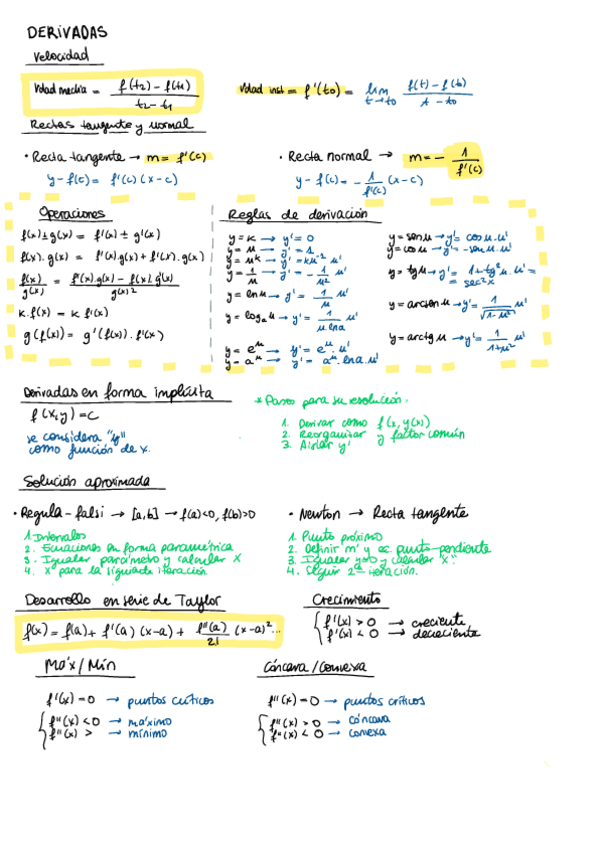 DERIVADAS
Velocidad
Vdad media = f(t2) - f(t1) / t2 - t1
Vdad inst = f'(t0) = lim t→t0 f(t) - f(t0) / t - t0
Rectas tangente y normal
• Recta tangente → m = f'(c)
y - f(c) = f'(c) (x - c)
• Recta normal → m = - 1 / f'(c)
y - f(c) = - 1 / f'(c) (x - c)
Operaciones
f(x) ± g(x) = f'(x) ± g'(x)
f(x) . g(x) = f'(x).g(x) + f'(x).g(x)
f(x) / g(x) = f'(x).g(x) - f(x).g'(x) / g(x)²
K.f(x) = K f'(x)
g(f(x)) = g'(f(x)).f'(x)
Reglas de derivación
y = K → y' = 0
y = u → y' = 1
y = u^K → y' = K u^K-1 u'
y = 1/u → y' = - 1/u² u'
y = ln u → y' = 1/u u'
y = log_a u → y' = 1 / u.ln a u'
y = e^u → y' = e^u . u'
y = a^u → y' = a^u . ln a . u'
y = sen u → y' = cos u . u'
y = cos u → y' = - sen u . u'
y = tg u → y' = 1 + tg² u . u' =
= sec² x
y = arcsen u → y' = 1 / √1-u² u'
y = arctg u → y' = 1 / 1+u² u'
Derivadas en forma implícita
f(x,y) = C
se considera "y"
como función de x.
* Pasos para su resolución:
1. Derivar como f(x, y(x))
2. Reorganizar y factor común
3. Aislar y'
Solución aproximada
• Regula-falsi → [a,b] → f(a)<0, f(b)>0
1. Intervalos
2. Ecuaciones en forma paramétrica
3. Igualar parámetro y calcular x
4. x para la siguiente iteración.
• Newton → Recta tangente
1. Punto próximo
2. Definir m' y ec. punto-pendiente
3. Igualar y=0 y calcular "x"
4. Seguir 2ª iteración.
Desarrollo en serie de Taylor
f(x) = f(a) + f'(a) (x-a) + f''(a) / 2! (x-a)²...
Crecimiento
f'(x) > 0 → creciente
f'(x) < 0 → decreciente
Máx / Mín
f'(x) = 0 → puntos críticos
f''(x) < 0 → máximo
f''(x) > → mínimo
Cóncava / Convexa
f''(x) = 0 → puntos críticos
f''(x) > 0 → cóncava
f''(x) < 0 → convexa